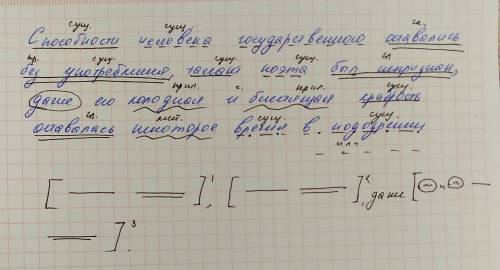 сущ. сущ. гл.
Способности человека государственного оставались
пр. сущ. сущ. сущ. гл.
без употребления, талант поэта был непризнан,
прил. с. прил. сущ.
даже его холодная и блестящая храбрость
гл. мест. сущ. сущ.
оставалась некоторое время в подозрении
[ ]¹, [ ]², даже [ и
]³.